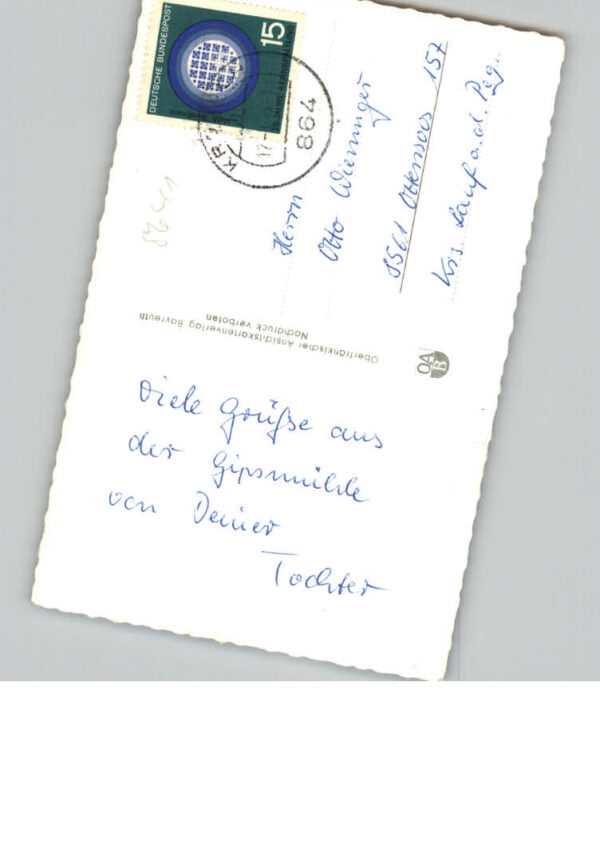 DEUTSCHE BUNDESPOST
15
864
Viele Grüße aus
der Gipsmühle
von Deiner
Tochter
Herrn
Otto Wieninger
8561 Ottensoos 157
Krs. Lauf a. d. Peg.
Oberfränkischer Ansichtskartenverlag Bayreuth
Nachdruck verboten
OA
B